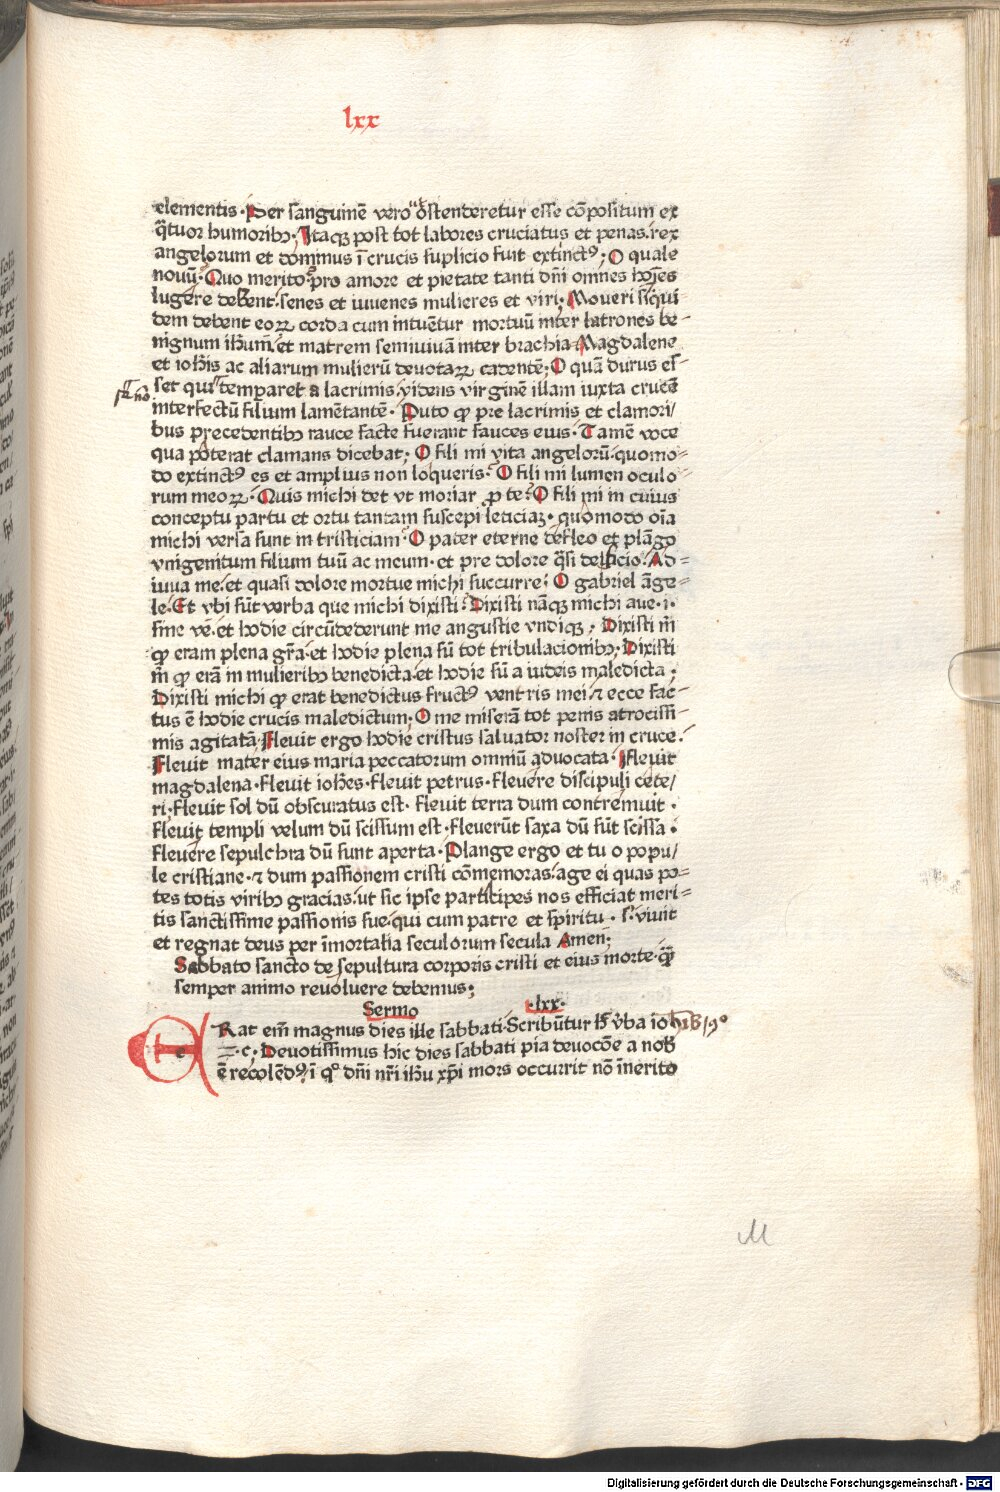 lxx
elementis. Per sanguinē vero oſtenderetur eſſe cōpoſitum ex
q̄tuor humoribꝫ. Itaqꝫ poſt tot labores cruciatus et penas. rex
angelorum et dominus ī crucis ſuplicio fuit extinctꝰ; O quale
nouū. Quo merito pro amore et pietate tanti dn̄i omnes hoīes
lugere debent. ſenes et iuuenes mulieres et viri; Moueri ſiqui
dem debent eoꝝ corda cum intuētur mortuū inter latrones be-
nignum ihūm. et matrem ſemiviuā inter brachia Magdalene
et ioħis ac aliarum mulierū deuotaꝝ cadentē; O quā durus eſ-
ſet qui temparet a lacrimis. videns virginē illam iuxta crucē
interfectū filium lamētantē. Puto ꝙ pre lacrimis et clamori/
bus precedentibꝫ rauce facte fuerant fauces eius. Tamē voce
qua poterat clamans dicebat; O fili mi vita angelorū. quomo-
do extinctꝰ es et amplius non loqueris. O fili mi lumen oculo
rum meoꝝ. Quis michi det vt moriar ꝓ te? O fili mi in cuius
conceptu partu et ortu tantam ſuſcepi leticiaꝫ. quomodo oīa
michi verſa ſunt in triſticiam. O pater eterne defleo et plāgo
vnigenitum filium tuū ac meum. et pre dolore q̄ſi deficio. Ad-
iuua me. et quaſi dolore mortue michi ſuccurre: O gabriel āge-
le. Et vbi ſūt verba que michi dixiſti. Dixiſti nāqꝫ michi aue. i.
ſine ve. et hodie circūdederunt me anguſtie vndiqꝫ; Dixiſti m̄
ꝙ eram plena gr̄a. et hodie plena ſū tot tribulacionibꝫ; Dixiſti
m̄ ꝙ erā in mulieribꝫ benedicta. et hodie ſū a iudeis maledicta;
Dixiſti michi ꝙ erat benedictus fructꝰ ventris mei. ⁊ ecce fac-
tus ē hodie crucis maledictum; O me miſerā tot penis atrociſſi-
mis agitatā. Fleuit ergo hodie criſtus ſaluator noſter in cruce.
Fleuit mater eius maria peccatorum ommū aduocata. Fleuit
magdalena. Fleuit ioħes. Fleuit petrus. Fleuere diſcipuli cete/
ri. Fleuit ſol dū obſcuratus eſt. Fleuit terra dum contremuit.
Fleuit templi velum dū ſciſſum eſt. Fleuerūt ſaxa dū ſūt ſciſſa.
Fleuere ſepulchra dū ſunt aperta. Plange ergo et tu o popu/
le criſtiane. ⁊ dum paſſionem criſti cōmemoras. age ei quas po-
tes totis viribꝫ gracias. ut ſic ipſe participes nos efficiat meri-
tis ſanctiſſime paſſionis ſue. qui cum patre et ſpiritu. ſ. viuit
et regnat deus per īmortalia ſeculorum ſecula Amen;
Sabbato ſancto de ſepultura corporis criſti et eius morte. q̄ꝫ
ſemper animo reuoluere debemus;
Sermo .lxx.
ERat em̄ magnus dies ille ſabbati. Scribūtur h̄ v̄ba ioħ 19°
⁊c; Deuotiſſimus hic dies ſabbati pia deuocōe a nob̄
ē recolēdꝰ. ī qͦ dn̄i nr̄i ih̄u xp̄i mors occurrit nō īmerito
M
Digitalisierung gefördert durch die Deutsche Forschungsgemeinschaft - DFG